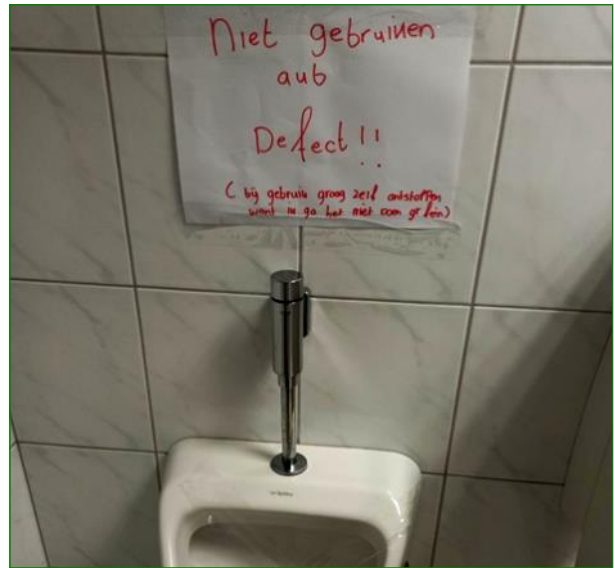 Niet gebruiken
aub
Defect!!
(bij gebruik graag zelf ontstoppen
want ik ga het niet doen